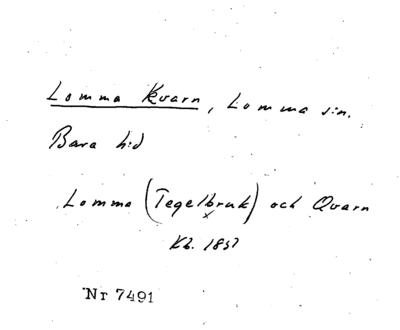 Lomma Kvarn, Lomma s:n.
Bara h:d
Lomma (Tegelbruk) och Qvarn
Kb. 1857
Nr 7491